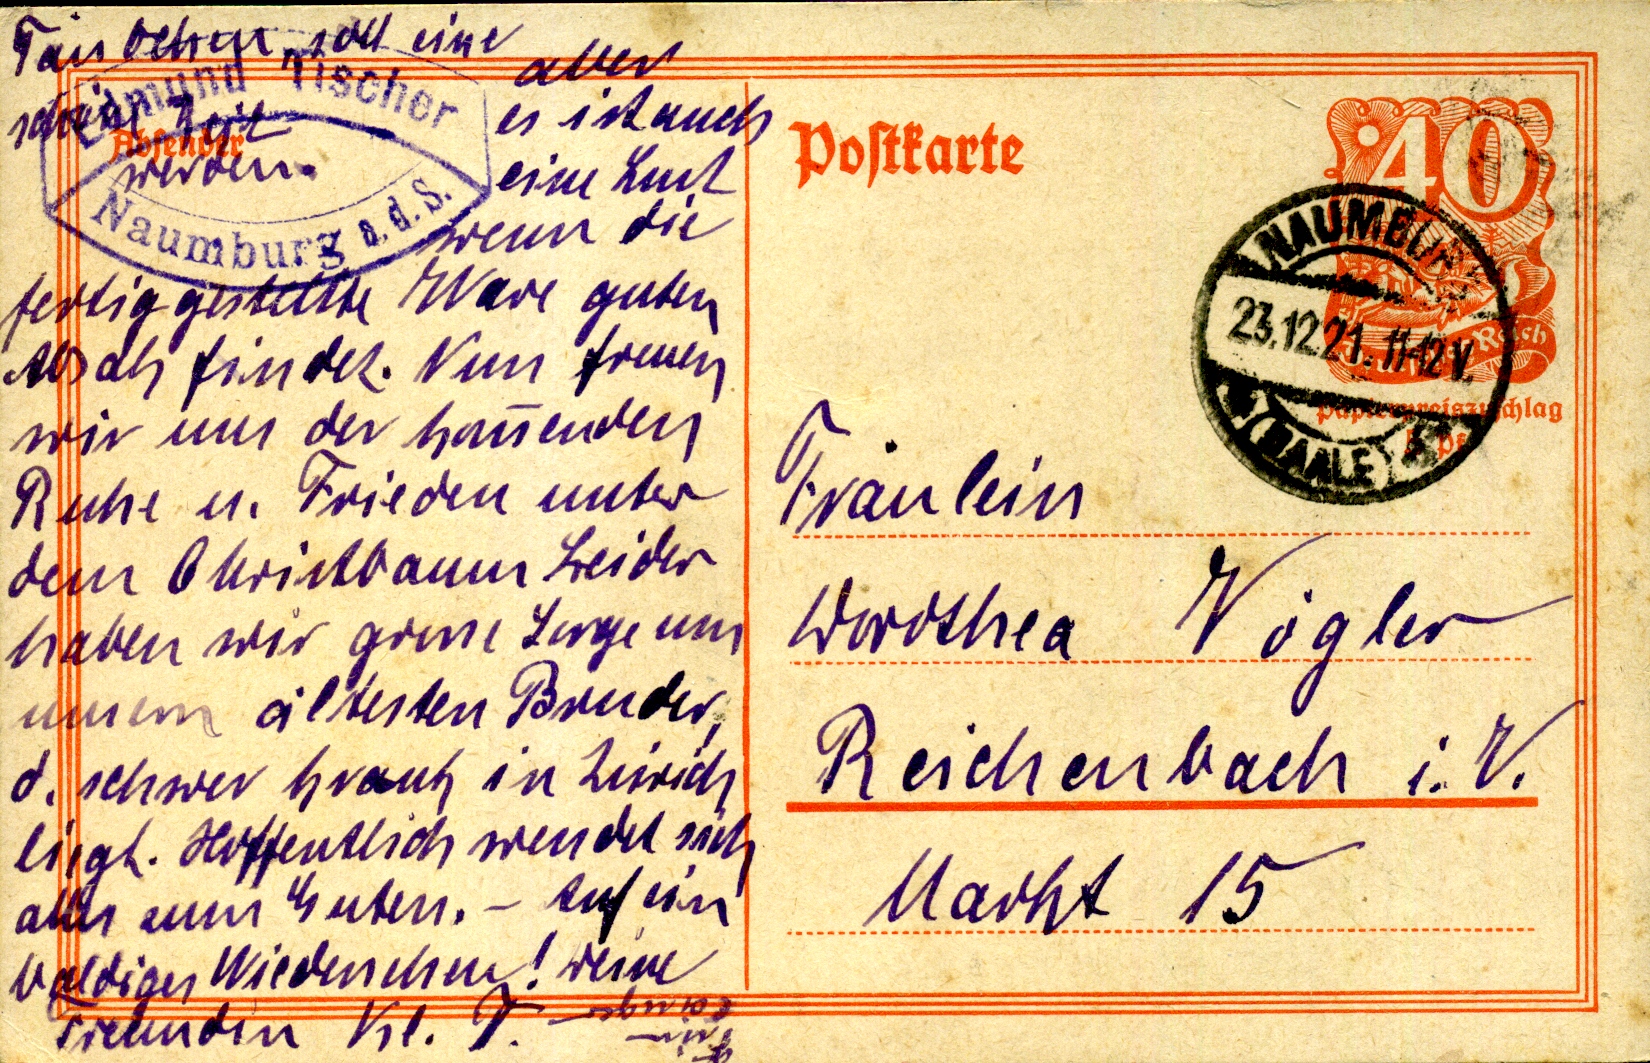 Täubchen, soll eine
schöne Zeit
werden.
aber
es ist auch
eine Lust
wenn die
fertiggestellte Ware guten
Absatz findet. Nun freuen
wir uns der kom̅enden
Ruhe u. Frieden unter
dem Christbaum Leider
haben wir grosse Sorge um
unsern ältesten Bruder,
d. schwer krank in Zürich
liegt. Hoffentlich wendet sich
alles zum Guten. – Auf ein
baldiges Wiedersehen! Deine
Freundin Kl. T.
Edmund Tischer
Naumburg a.d.S.
Absender
Postkarte
40
Reich
Papierpreiszuschlag
NAUMBURG
23.12.21. 11-12 V.
(SAALE)
Fräulein
Dorothea Vogler
Reichenbach i. V.
Markt 15